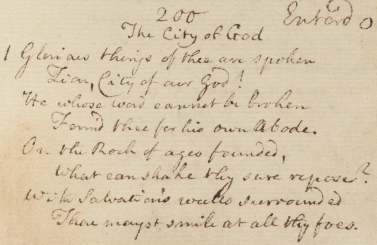 200 Enterd O
The City of God
1 Glorious things of thee are spoken
Zion, City of our God!
He whose word cannot be broken
Form'd thee for his own Abode.
On the Rock of ages founded,
What can shake thy sure repose?
With Salvation's walls surrounded
Thou mayst smile at all thy foes.